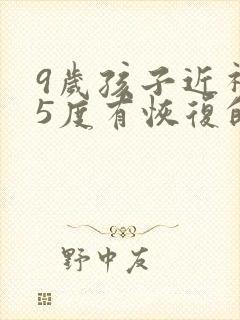 9歲孩子近
5度有恢復
野中友